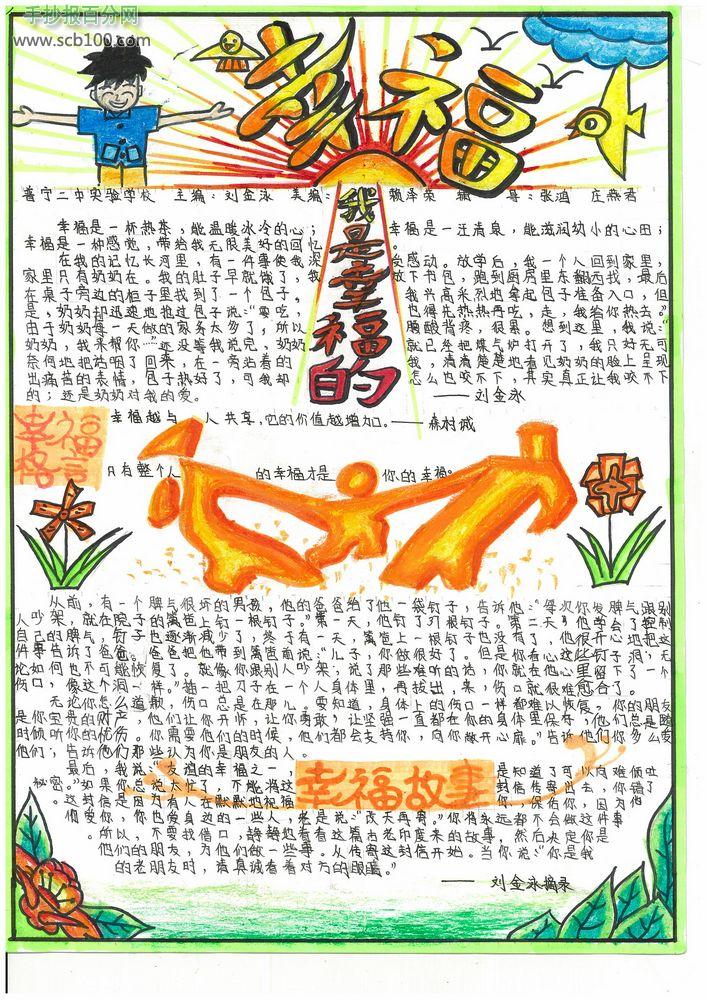 手抄报百分网
www.scb100.com
幸福
普宁二中实验学校 主编：刘金泳 美编： 赖泽荣 辑 导：张迪 庄燕君
我是幸福的
幸福是一杯热茶，能温暖冰冷的心； 幸福是一汪清泉，能滋润幼小的心田；
幸福是一种感觉，带给我无限美好的回忆。
在我的记忆长河里，有一件事使我深 受感动。放学后，我一个人回到家里，
家里只有奶奶在。我的肚子早就饿了，我 放下书包，跑到厨房里东翻西找，最后
在桌子旁边的柜子里我到了一个包子。 我兴高采烈地拿起包子准备入口，但
是，奶奶却迅速地抱过包子说：“要吃， 也得先热热再吃，走，我给你热去。”
由于奶奶每一天做的家务太多了，所以 腰酸背疼，很累。想到这里，我说：“
奶奶，我来帮你”还没等我说完，奶奶 就已经把煤气炉打开了，我只好无可
奈何地把话咽了回来，在一旁站着的 我，清清楚楚地看见奶奶的脸上呈现
出痛苦的表情，包子热好了，可我却 怎么也咬不下，其实真正让我咬不下
的；还是奶奶对我的爱。 ——刘金泳
幸福格言
幸福越与 人共享，它的价值越增加。——森村诚
只有整个人 的幸福才是 你的幸福。
从前，有一个脾气很坏的男孩，他的爸爸给了他一袋钉子，告诉他：“每次你发脾气跟别
人吵架，就在院子的篱笆上钉一根钉子。”第一天，他钉了37根钉子。第二天，他学会了控制
自己的脾气，钉子也逐渐减少了，终于有一天，篱笆上一根钉子也没有了，他很开心地把这
件事告诉了爸爸。爸爸把他带到篱笆前说：“儿子，你做很好了。但是你看心这些钉子洞，无
论如何也不可能恢复了。就像你跟别人吵架，说了那些难听的话，你就在他心里留下了一个
伤口，像这个洞一样。”插一把刀子在一个人身体里，再拔出来，伤口就很难愈合了。
无论你怎么道歉，伤口总是在那儿。要知道，身体上的伤口一样都难以恢复。你的朋友
是你宝贵的财产，他们让你开怀，让你勇敢，让坚强一直都在你的身体里保存，他们总是随
时倾听你的忧伤。你需要他们的时候，他们都会支持你，向你敞开心扉。”告诉他们你多么爱
他们；告诉他们那些认为你是朋友的人。
最后，我说：“友谊的幸福之一， 是知道了可以向谁倾吐
秘密。”如果你总说太忙了，不能将这 封信传寄出去，你错了
。这封信是因为有人在默默地祝福 你，保佑你，因为他
们爱你，你也爱身边的一些人，老是说：“改天再寄。”你将永远都不会做这件事
。所以，不要找借口，静静地看看这篇古老印度来的故事，然后决定你是
他们的朋友，为他们做一些事。从传寄这封信开始。当你说：“你是我
的老朋友时，请真诚看着对方的眼睛。”
幸福故事
——刘金泳摘录